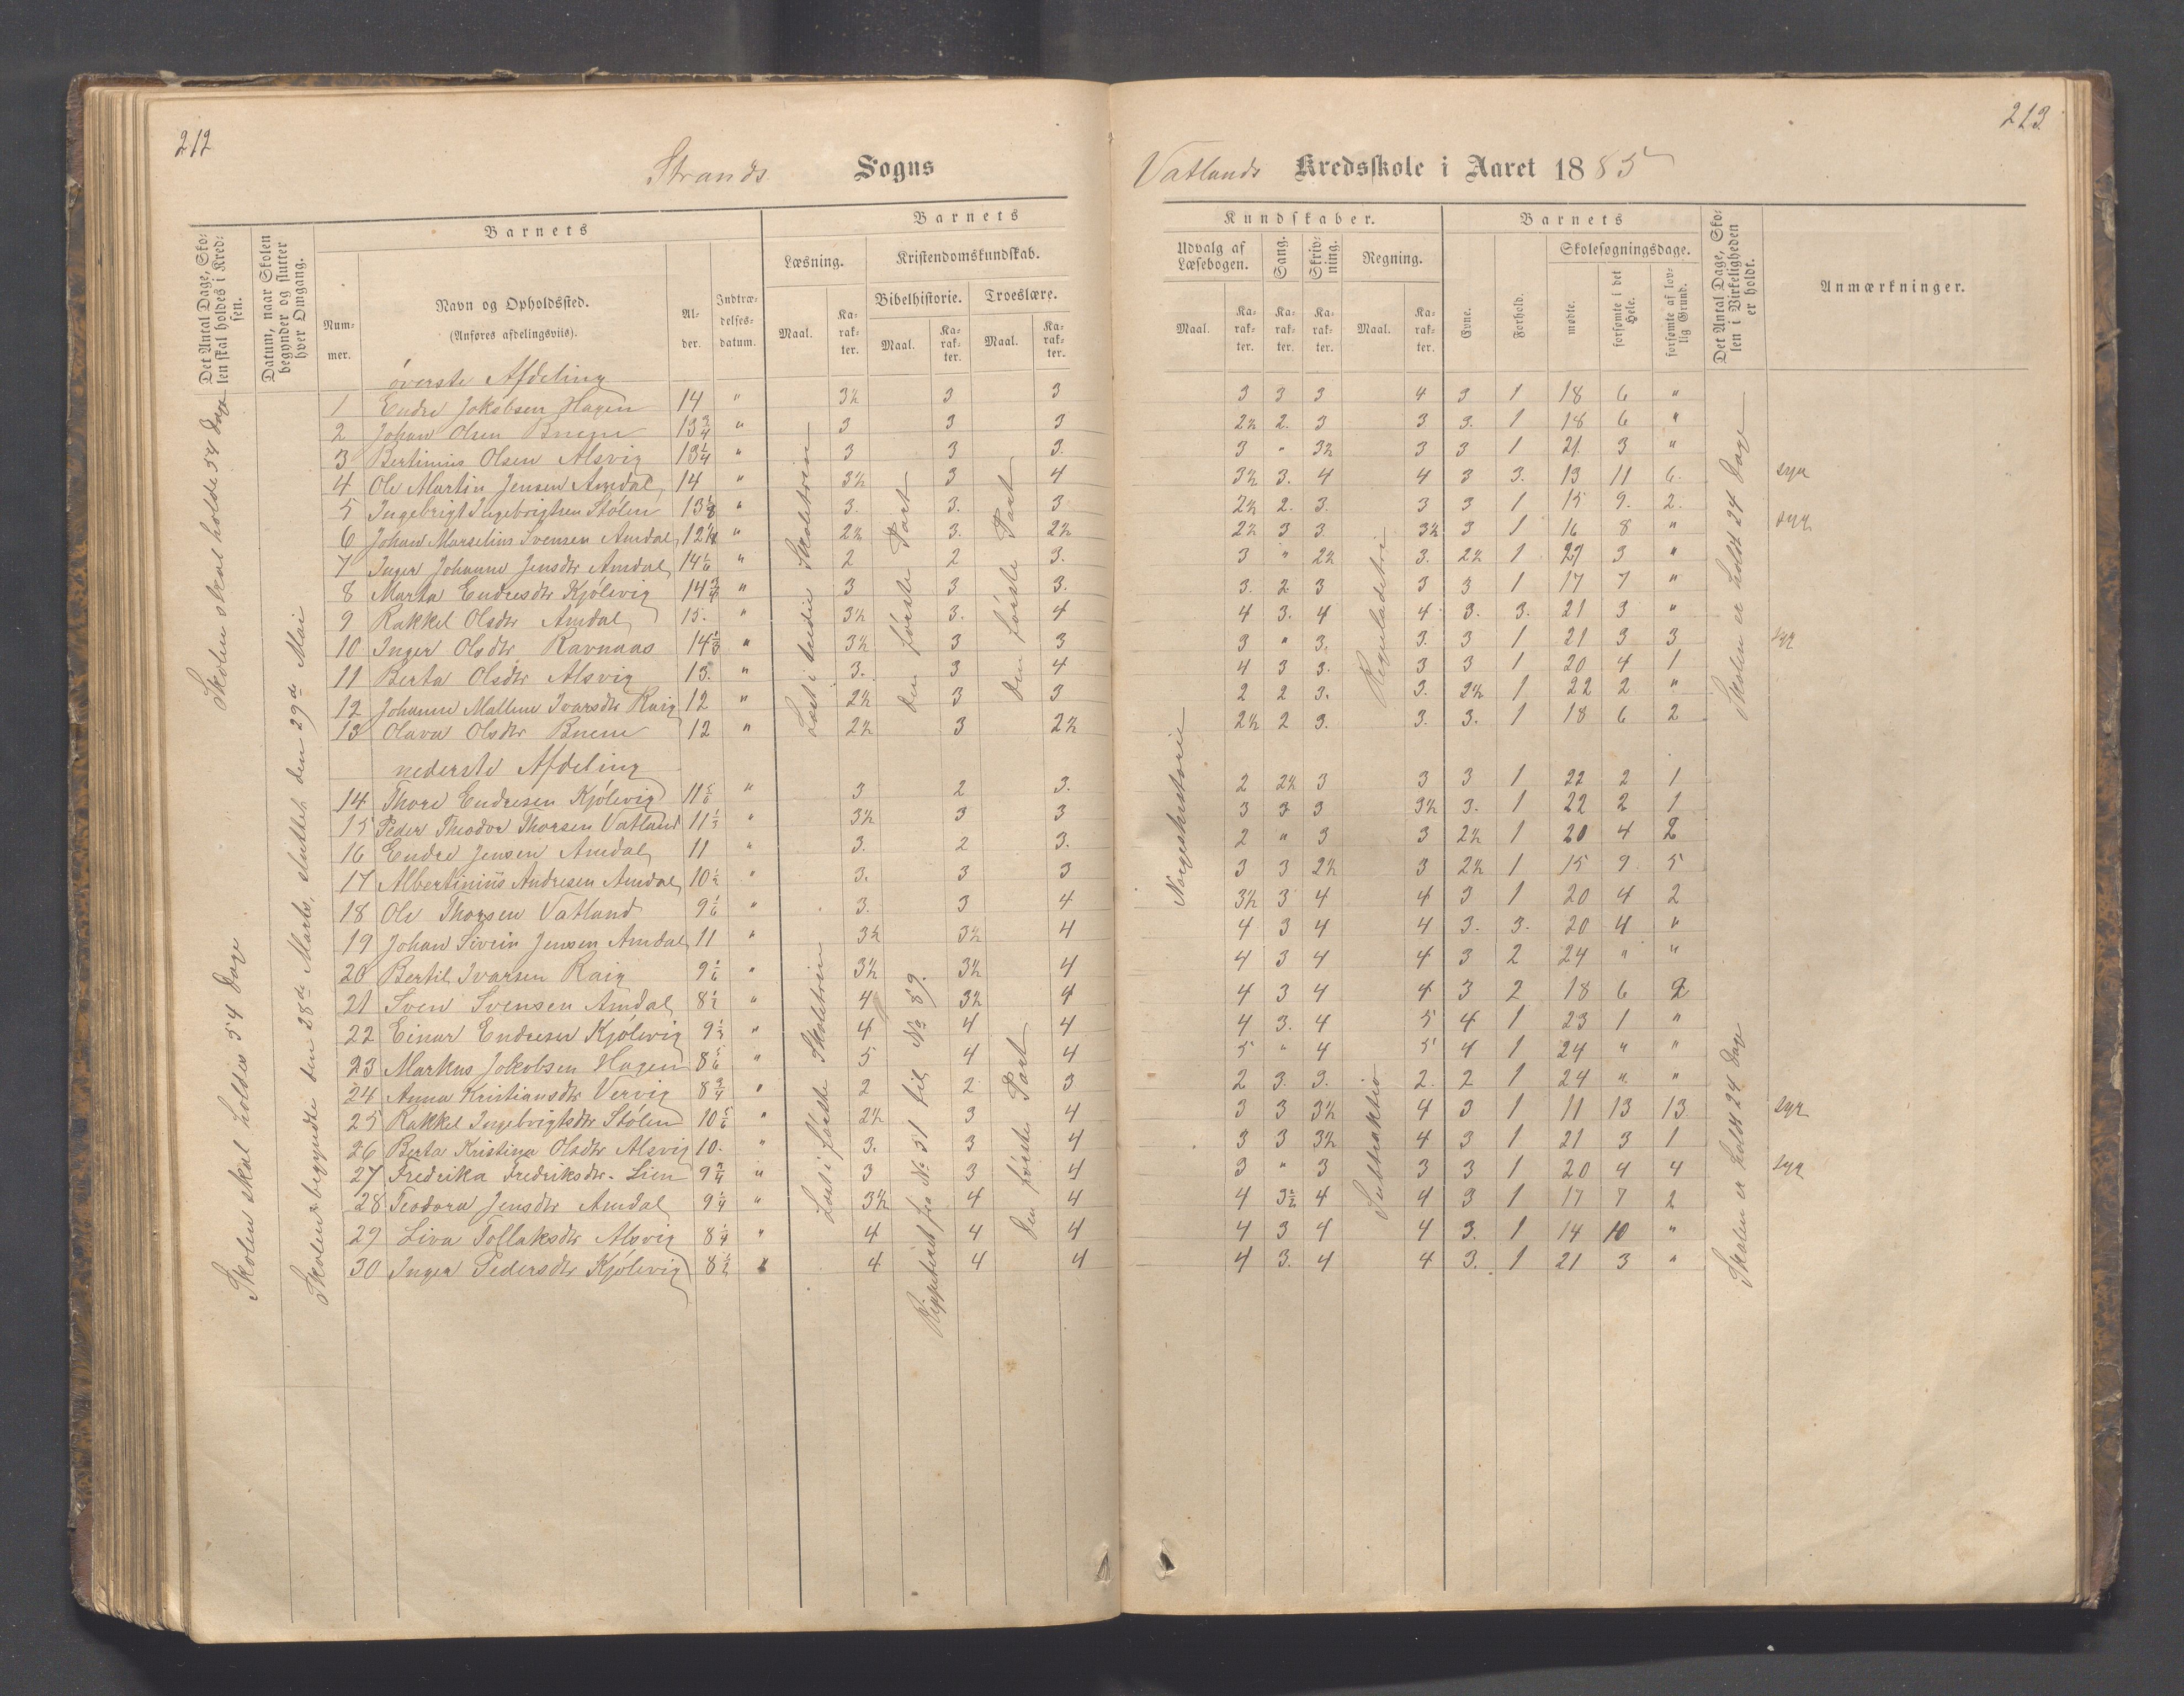 212
213
Strands Sogns
Vatlands Kredsskole i Aaret 1885
Det Antal Dage, Skolen skal holdes i Kredsen.
Datum, naar Skolen begynder og slutter hver Omgang.
Barnets
Nummer.
Navn og Opholdssted.
(Anføres afdelingsviis).
Alder.
Indtrædelsesdatum.
Barnets
Læsning.
Maal.
Karakter.
Kristendomskundskab.
Bibelhistorie.
Maal.
Karakter.
Troeslære.
Maal.
Karakter.
Kundskaber.
Udvalg af Læsebogen.
Maal.
Karakter.
Sang.
Karakter.
Skrivning.
Karakter.
Regning.
Maal.
Karakter.
Barnets
Evne.
Forhold.
Skolesøgningsdage.
mødte.
forsømte i det Hele.
forsømte af lovlig Grund.
Det Antal Dage, Skolen i Virkeligheden er holdt.
Anmærkninger.
Skolen skal holdes 54 dage
Skolen skal holdes 54 dage
Skolen begyndte den 28de Marts, sluttet den 29de Mai
Læst i tredie Skoletrin
den første Part
den første Part
Norgeshistorie
Reguladetri
Skolen er holdt 24 dage
Læst i første Skoletrin
Reppeteret fra No 51 til No 89.
den første Part
Subtraktion
Skolen er holdt 24 dage
øverste Afdeling
1 Endre Jakobsen Hagen 14 " 3½ 3 3 3 3 3 4 3 1 18 6 "
2 Johan Olsen Buene 13¾ " 3 3 3 2½ 2. 3 3 3. 1 18 6 "
3 Bertinius Olsen Alsvig 13¼ " 3 3 3. 3 " 3½ 3 3 1 21. 3 "
4 Ole Martin Jensen Amdal 14 " 3½ 3 4 3½ 3. 4 4 3 3. 13 11 6. syg
5 Ingebrigt Ingebrigtsen Stølen 13⅓ " 3. 3. 3 2½ 2. 3. 3 3 1 15 9. 2.
6 Johan Marselius Svensen Amdal 12¼ " 2½ 3. 2½ 2½ 3 3. 3½ 3 1 16 8 " syg
7 Inger Johanne Jensdtr Amdal 14⅙ " 2 2 3. 3 " 2½ 3. 2½ 1 21 3 "
8 Marta Endresdtr Kjølevig 14¾ " 3 3 3. 3. 2 3 3 3 1 17 7 "
9 Rakkel Olsdtr Amdal 15. " 3½ 3. 4 4 3. 4 4 3. 3. 21 3 "
10 Inger Olsdtr Ravnaas 14⅓ " 3½ 3 3 3 " 3. 3. 3 1 21 3 3 syg
11 Berta Olsdtr Alsvig 13. " 3. 3 4 4 3 3. 3 3 1 20 4 1
12 Johanne Malline Ivarsdtr Raig 12 " 2½ 3 3 2 2 3. 3. 2½ 1 22 2 "
13 Olava Olsdtr Buene 12 " 2½ 3 2½ 2½ 2 3. 3. 3. 1 18 6 2
nederste Afdeling
14 Thore Endresen Kjølevig 11⅚ " 3 2 3. 2 2½ 3 3 3 1 22 2 1
15 Peder Theodor Thorsen Vatland 11⅓ " 3½ 3 3 3 3 3 3½ 3. 1 22 2 1
16 Endre Jensen Amdal 11 " 3. 2 3. 2 " 3 3 2½ 1 20 4 2
17 Albertinius Andresen Amdal 10½ " 3. 3 3 3 3 2½ 3 2½ 1 15 9. 5
18 Ole Thorsen Vatland 9⅙ " 3. 3 4 3½ 3 4 4 3 1 20 4 2
19 Johan Sivert Jensen Amdal 11 " 3½ 3½ 4 4 3 4 4 3. 3. 20 4 "
20 Bertil Ivarsen Raig 9⅙ " 3½ 3½ 4 4 3 4 4 3 2 24 " "
21 Sven Svensen Amdal 8½ " 4 3½ 4 4 3 4 4 3 2 18 6 2
22 Einar Endresen Kjølevig 9⅓ " 4 4 4 4 3. 4 5 4 1 23 1 "
23 Markus Jakobsen Hagen 8⅚ " 5 4 4 5 " 4 5 4 1 24 " "
24 Anna Kristiansdtr Vervig 8¾ " 2 2 3 2 3. 3. 2. 2 1 24 " "
25 Rakkel Ingebrigtsdtr Stølen 10⅚ " 2½ 3 4 3 3 3½ 4 3 1 11 13 13 syg
26 Berta Kristina Olsdtr Alsvig 10. " 3. 3 4 3 3 3½ 4 3 1 21 3 1
27 Fredrika Fredriksdtr. Lien 9¾ " 3 3 4 3 " 3 3 3 1 20 4 4 syg
28 Teodora Jensdtr Amdal 9¼ " 3½ 4 4 4 3½ 4 4 3 1 17 7 2
29 Liva Tollaksdtr Alsvig 8¼ " 4 4 4 4 3 4 4 3. 1 14 10 "
30 Inger Pedersdtr Kjølevig 8½ " 4 4 4 4 3. 4 4 3. 1 21 3 "